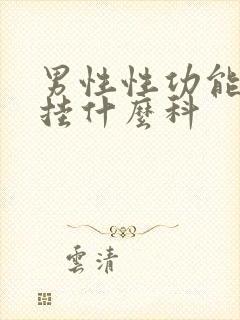 男性性功能
挂什麽科
雲清